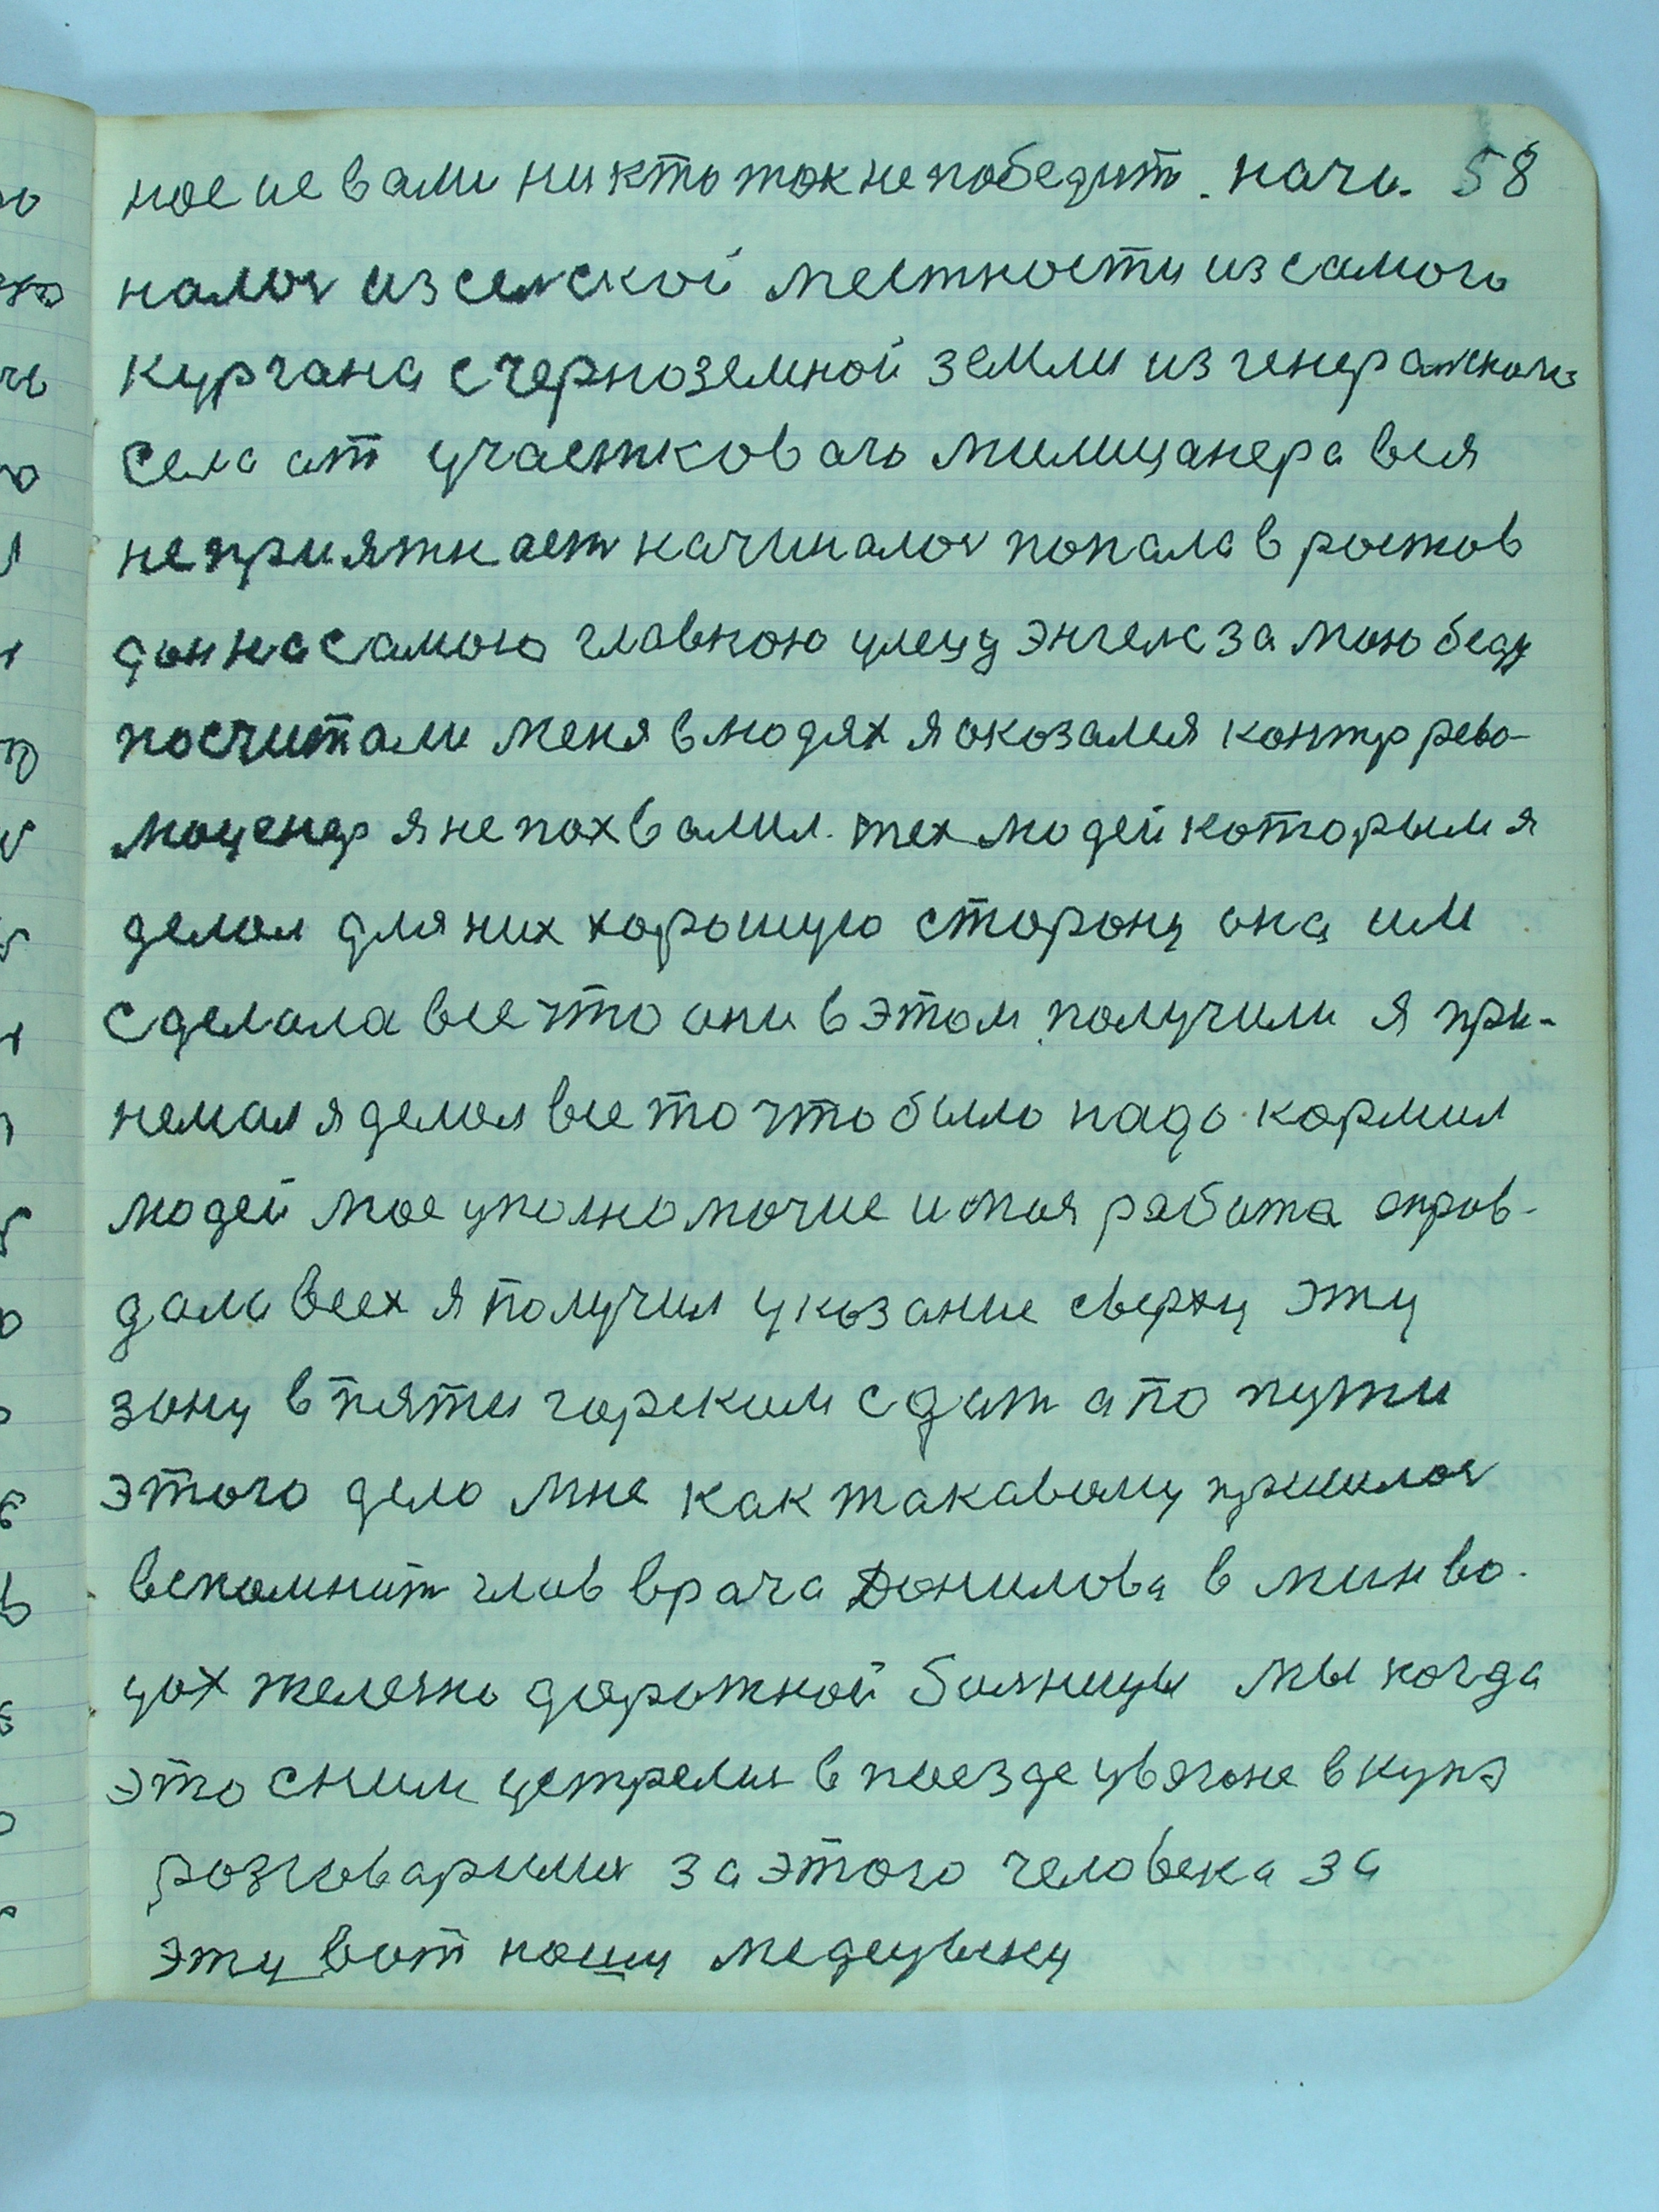 ное не вами никто так не победит. начи- 58
налось из селской местности из самого
кургана с черноземной земли из генералского
села от участковаго милицанера вся
неприятност началось попала в ростов
дон на самою главною улецу энгелс за мою беду
посчитали меня в людях я оказался контррево-
люценер я не похвалил тех людей которым я
делал для них хорошую сторону она им
сделала все что они в этом получили я при-
немал я делал все то что было надо кормил
людей мое уполномочие и моя работа оправ-
дала всех я получил указание сверху эту
зону в пятигорским сдат а по пути
этого дело мне как такавому пришлось
вспомнит глав врача Донилова в минво-
дах железно дорожной болницы мы когда
это с ним устрелис в поезде у вагоне в купэ
розговарилис за этого человека за
эту вот нашу медецыну